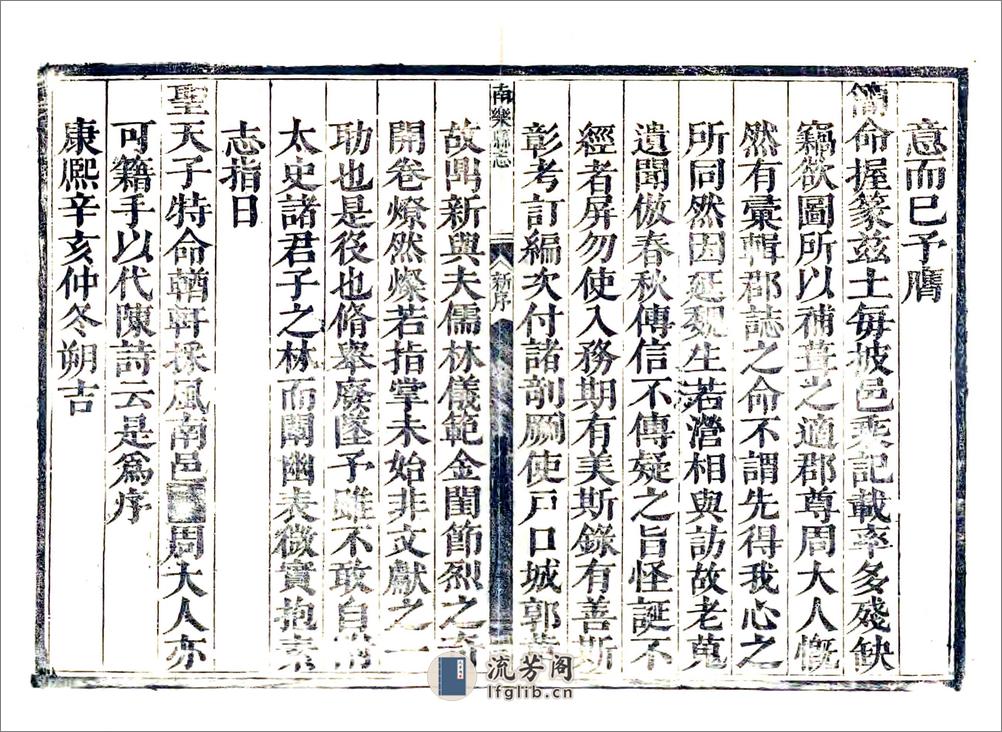 意而已予膺
簡命握篆茲土每披邑乘記載率多殘缺
竊欲圖所以補葺之適郡尊周大人慨
然有彙輯郡誌之命不謂先得我心之
所同然因延魏生若瀅相與訪故老蒐
遺聞倣春秋傳信不傳疑之旨怪誕不
經者屏勿使入務期有美斯錄有善斯
彰考訂編次付諸剞劂使戸口城郭
南樂縣志
新序
故鼎新與夫儒林儀範金閨節烈之
開卷燎然燦若指掌未始非文獻之一
功也是後也脩舉廢墜予雖不敢自
太史諸君子之林而闡幽表微實抱素
志指日
聖天子特命輶軒採風南邑周大人亦
可籍手以代陳詩云是爲序
康熈辛亥仲冬朔吉
流芳阁
lfglib.cn